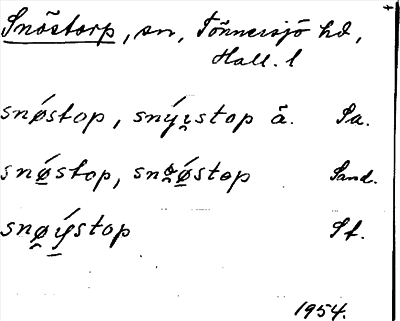 Snöstorp, sn, Tönnersjö hd,
Hall. l
snǿstop, snýı̯stop ä. Sa.
snǿ̱stop, snə̯ǿ̱stop Sand.
snø̯ý̱stop St.
1954.